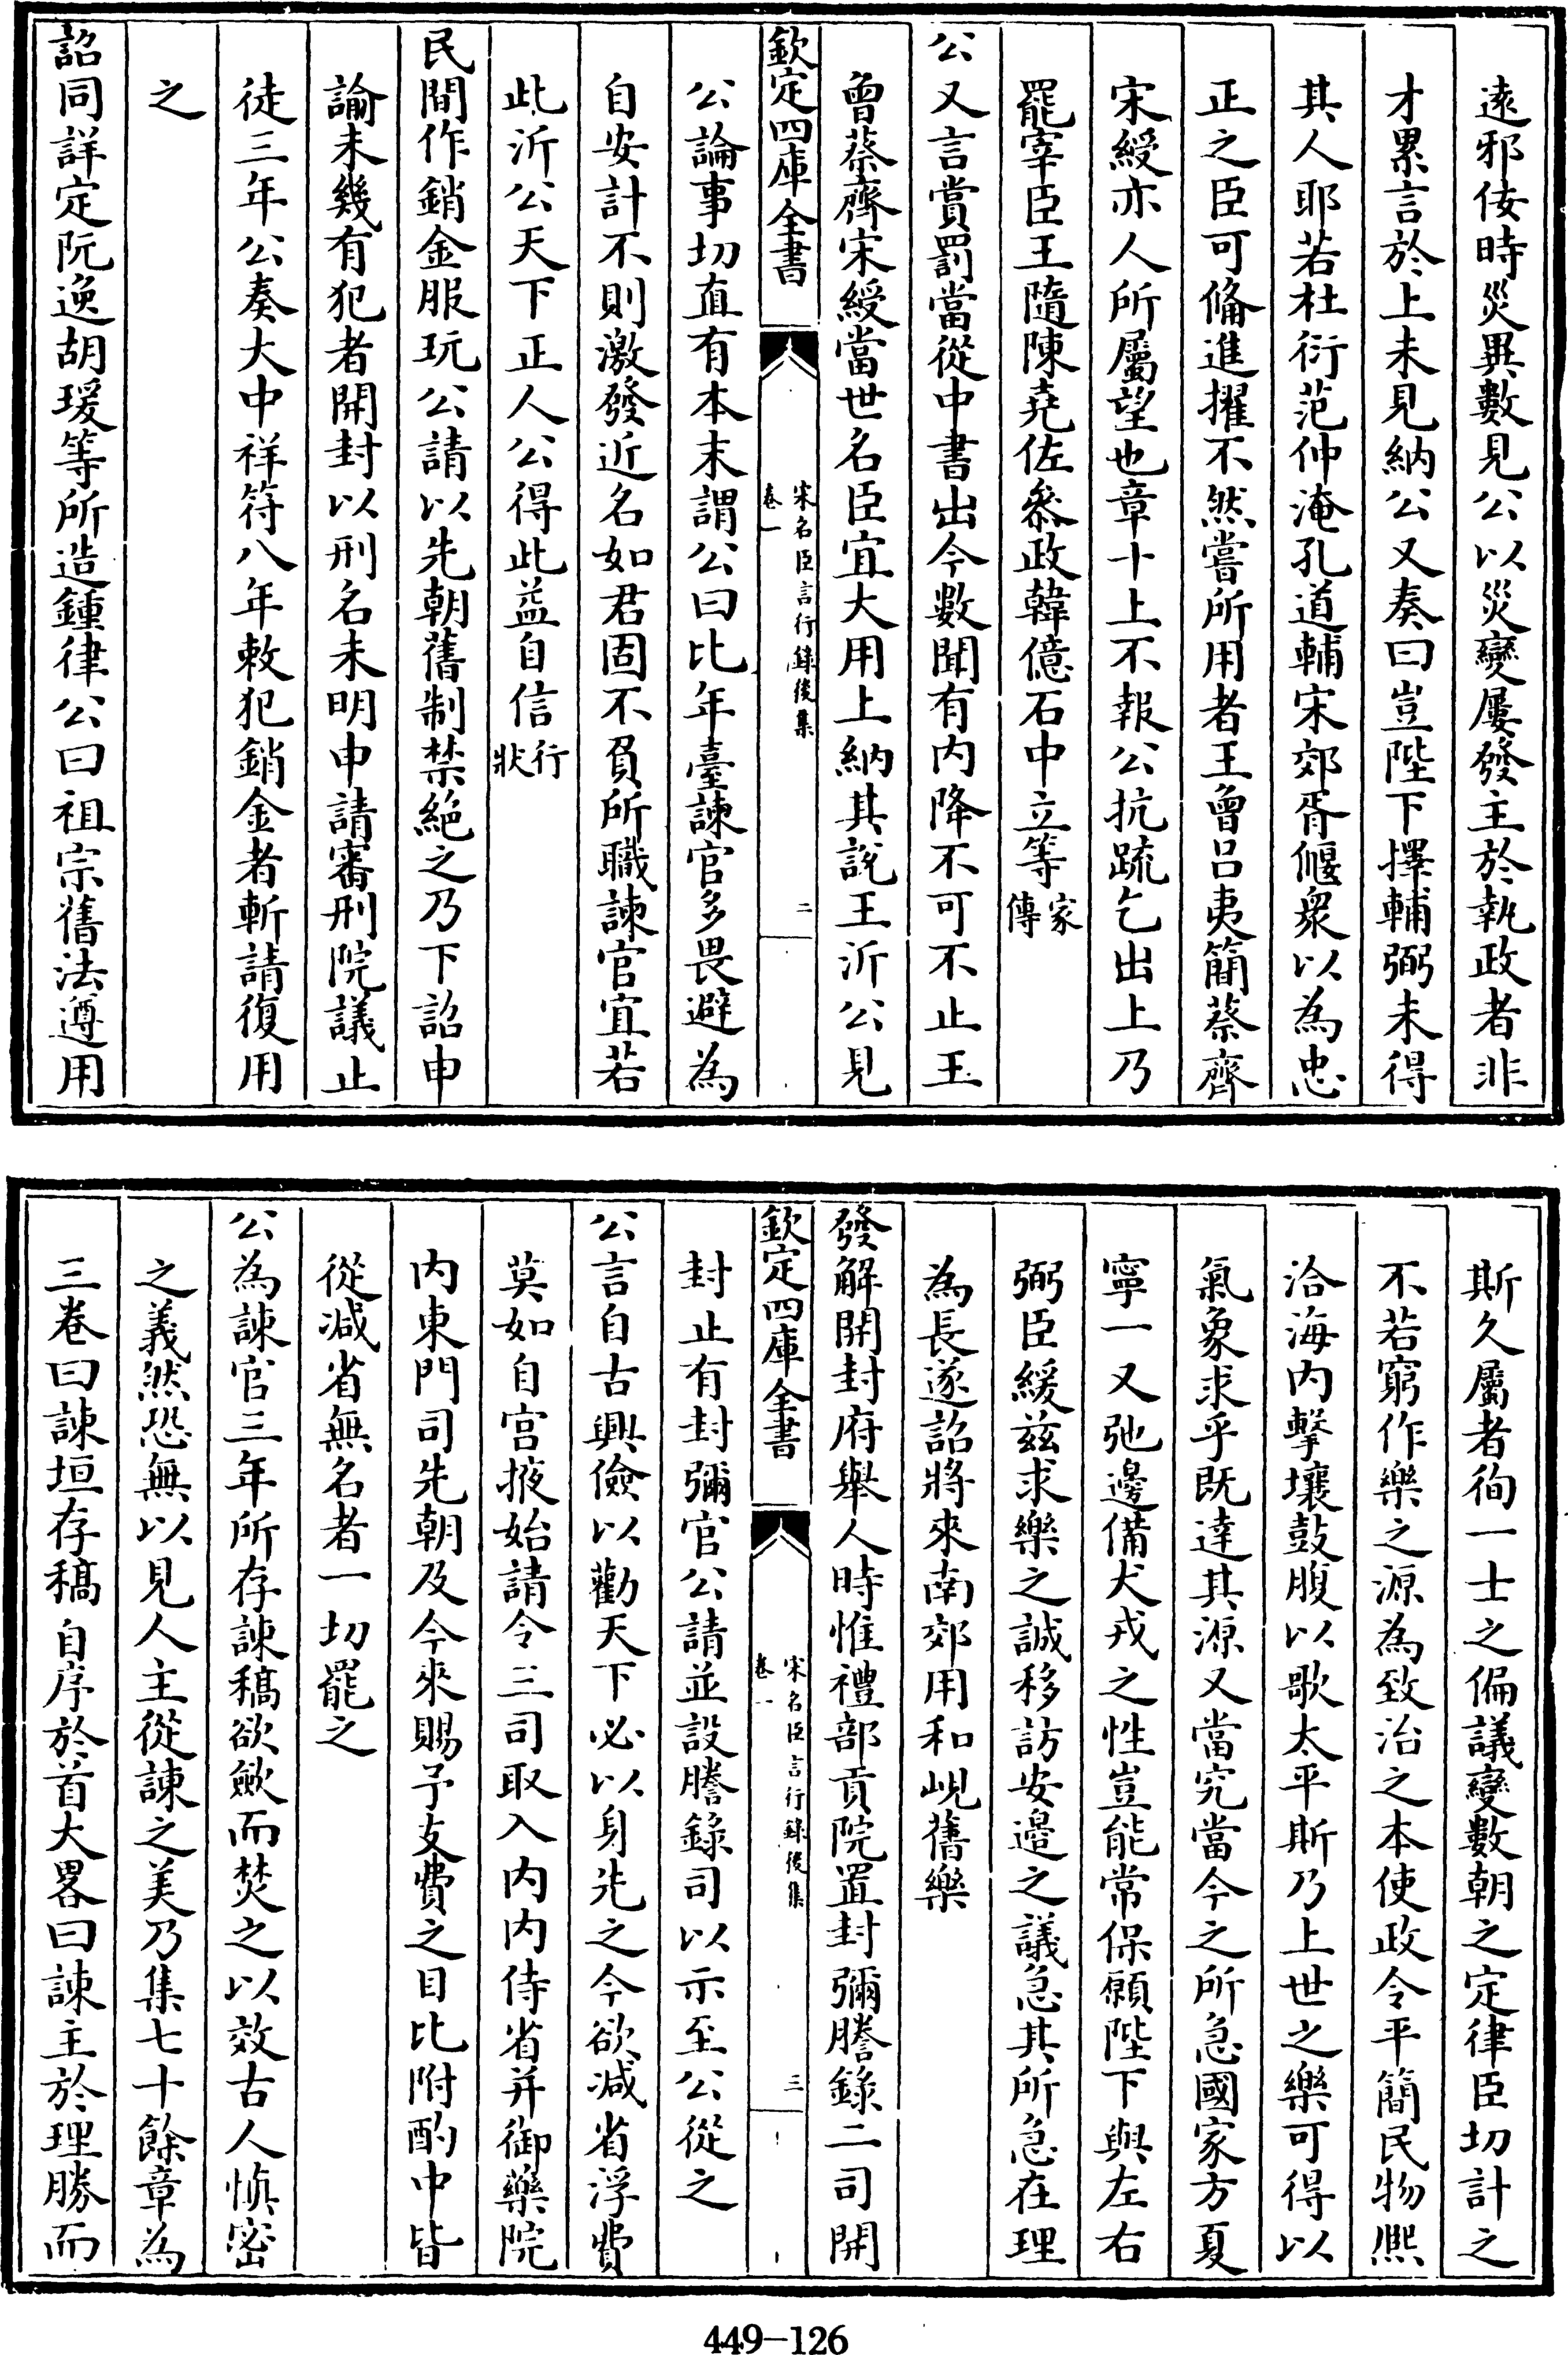 遠邪佞時災異數見公以災變屢發主於執政者非
才累言於上未見納公又奏曰豈陛下擇輔弼未得
其人耶若杜衍范仲淹孔道輔宋郊胥偃衆以為忠
正之臣可備進擢不然嘗所用者王曾呂夷簡蔡齊
宋綬亦人所屬望也章十上不報公抗疏乞出上乃
罷宰臣王隨陳堯佐叅政韓億石中立等家傳
公又言賞罰當從中書出今數聞有内降不可不止王
曾蔡齊宋綬當世名臣宜大用上納其說王沂公見
欽定四庫全書
宋名臣言行錄後集
卷一
二
公論事切直有本末謂公曰比年臺諫官多畏避為
自安計不則激發近名如君固不負所職諫官宜若
此沂公天下正人公得此益自信行狀
民間作銷金服玩公請以先朝舊制禁絶之乃下詔申
諭未幾有犯者開封以刑名未明申請審刑院議止
徒三年公奏大中祥符八年敕犯銷金者斬請復用
之
詔同詳定阮逸胡瑗等所造鍾律公曰祖宗舊法遵用
斯久屬者徇一士之偏議變數朝之定律臣切計之
不若窮作樂之源為致治之本使政令平簡民物熙
洽海内擊壤鼓腹以歌太平斯乃上世之樂可得以
氣象求乎既達其源又當究當今之所急國家方夏
寧一又弛邊備犬戎之性豈能常保願陛下與左右
弼臣緩兹求樂之誠移訪安邊之議急其所急在理
為長遂詔將來南郊用和峴舊樂
發解開封府舉人時惟禮部貢院置封彌謄錄二司開
欽定四庫全書
宋名臣言行錄後集
卷一
三
封止有封彌官公請並設謄錄司以示至公從之
公言自古興儉以勸天下必以身先之今欲减省浮費
莫如自宫掖始請令三司取入内内侍省并御藥院
内東門司先朝及今來賜予支費之目比附酌中皆
從减省無名者一切罷之
公為諫官三年所存諫稿欲歛而焚之以效古人慎密
之義然恐無以見人主從諫之美乃集七十餘章為
三卷曰諫垣存稿自序於首大畧曰諫主於理勝而
449-126